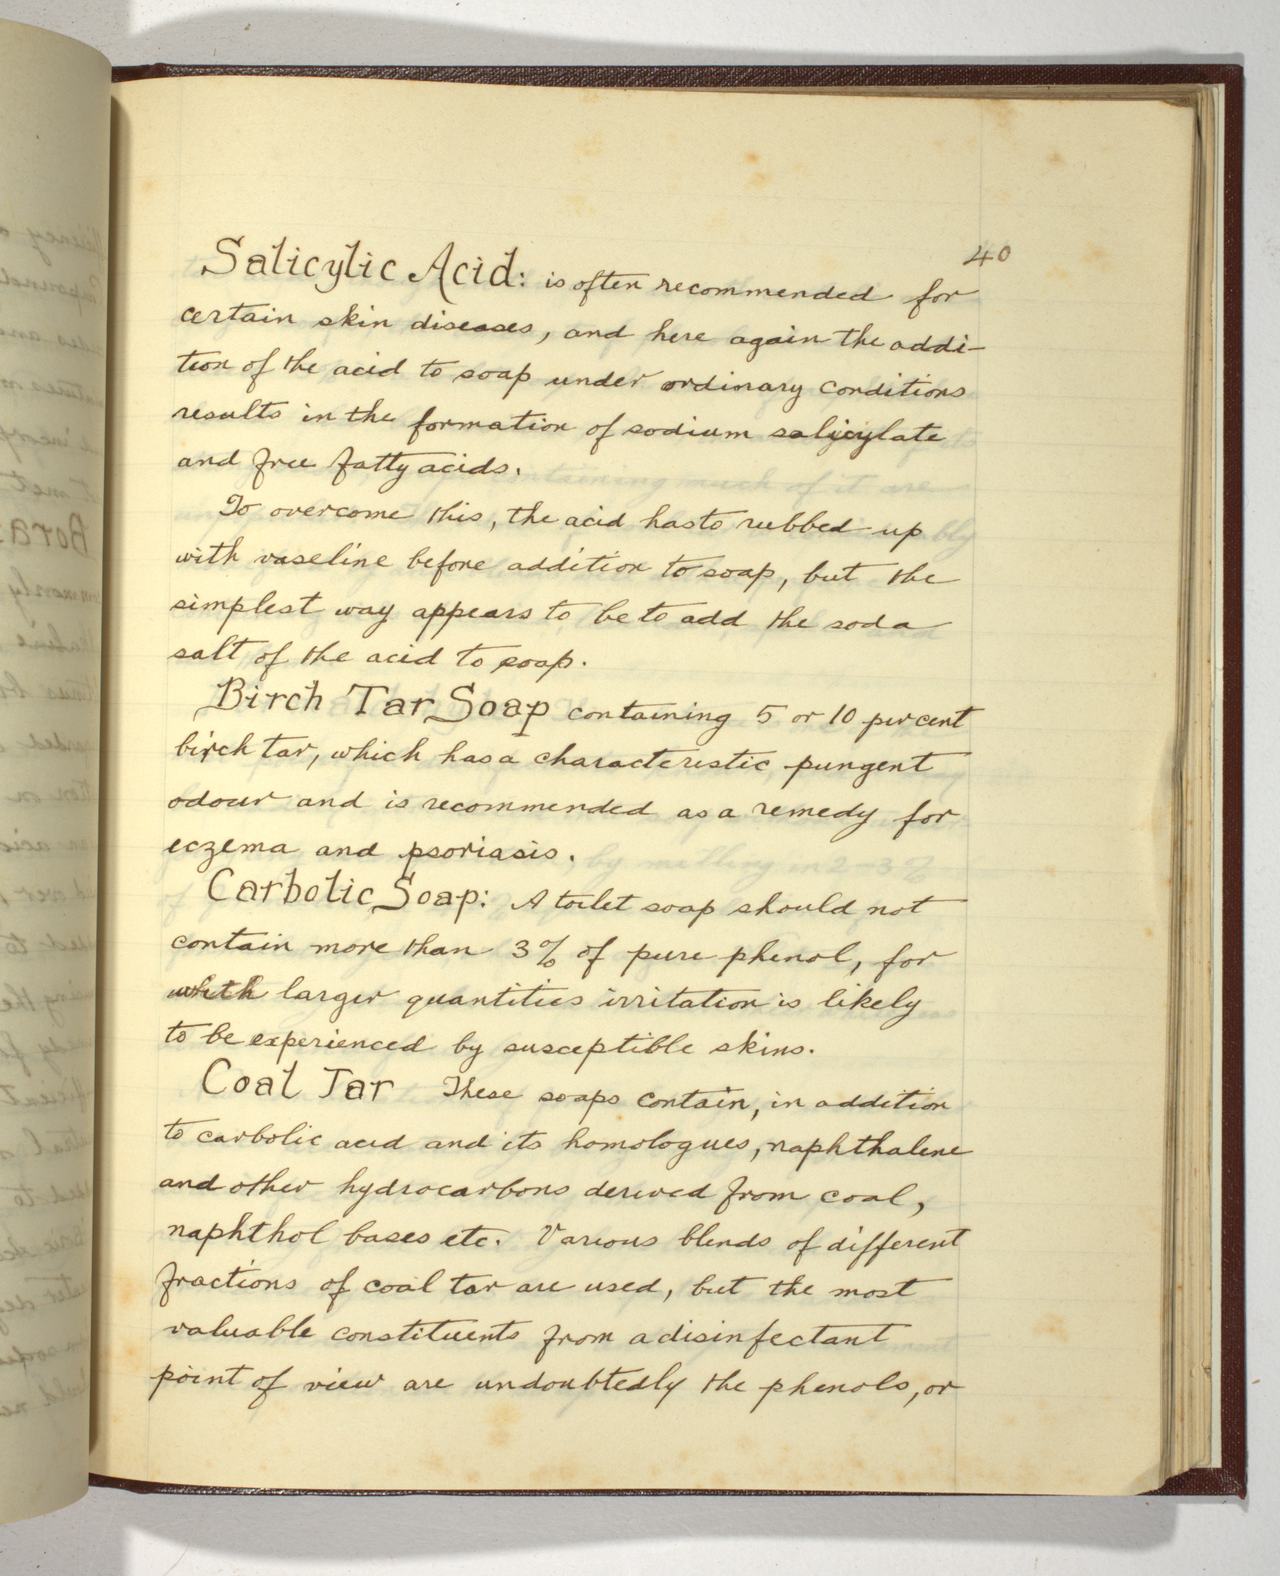 40
Salicylic Acid: is often recommended for
certain skin diseases, and here again the addi-
tion of the acid to soap under ordinary conditions
results in the formation of sodium salicylate
and free fatty acids.
To overcome this, the acid has to rubbed up
with vaseline before addition to soap, but the
simplest way appears to be to add the soda
salt of the acid to soap.
Birch Tar Soap containing 5 or 10 per cent
birch tar, which has a characteristic pungent
odour and is recommended as a remedy for
eczema and psoriasis.
Carbolic Soap: A toilet soap should not
contain more than 3% of pure phenol, for
with larger quantities irritation is likely
to be experienced by susceptible skins.
Coal Tar These soaps contain, in addition
to carbolic acid and its homologues, naphthalene
and other hydrocarbons derived from coal,
naphthol bases etc. Various blends of different
fractions of coal tar are used, but the most
valuable constituents from a disinfectant
point of view are undoubtedly the phenols, or